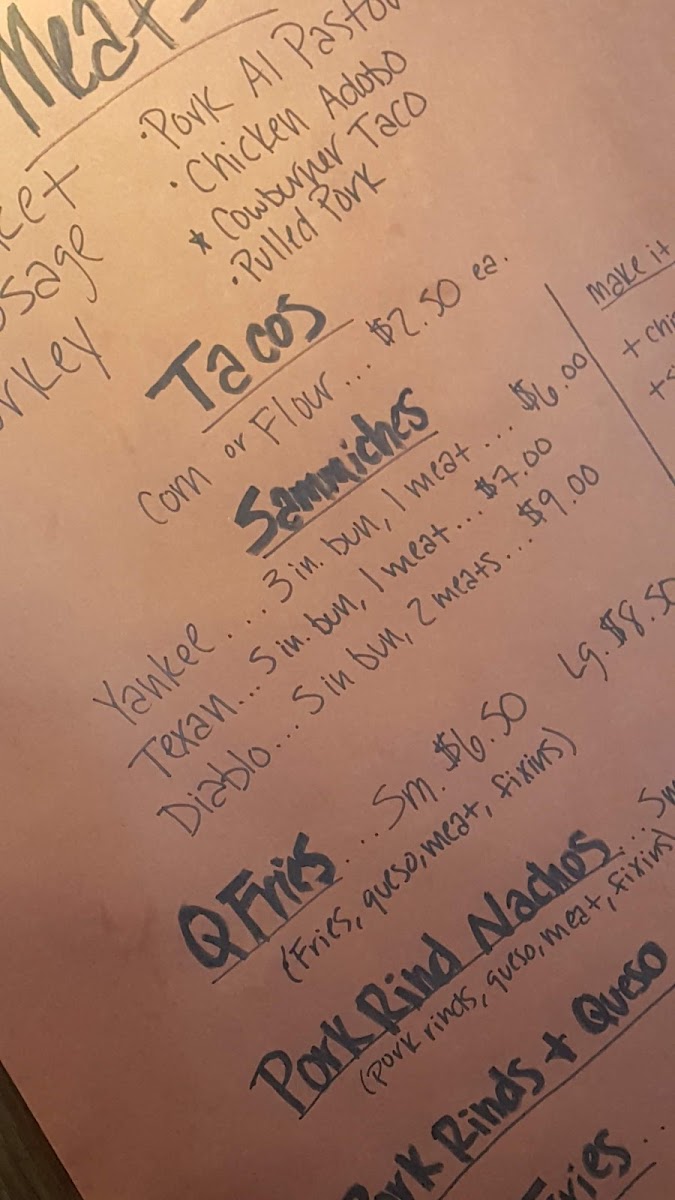 Meats
· Pork Al Pastor
· Chicken Adobo
* Cowburner Taco
· Pulled Pork
Tacos
Corn or Flour... $2.50 ea.
make it
Sammiches
Yankee... 3 in. bun, 1 meat... $6.00
Texan... 5 in. bun, 1 meat... $7.00
Diablo... 5 in bun, 2 meats... $9.00
Q Fries... Sm. $6.50 Lg. $8.50
(Fries, queso, meat, fixins)
Pork Rind Nachos... Sm
(pork rinds, queso, meat, fixins)
Rinds + Queso
Fries...